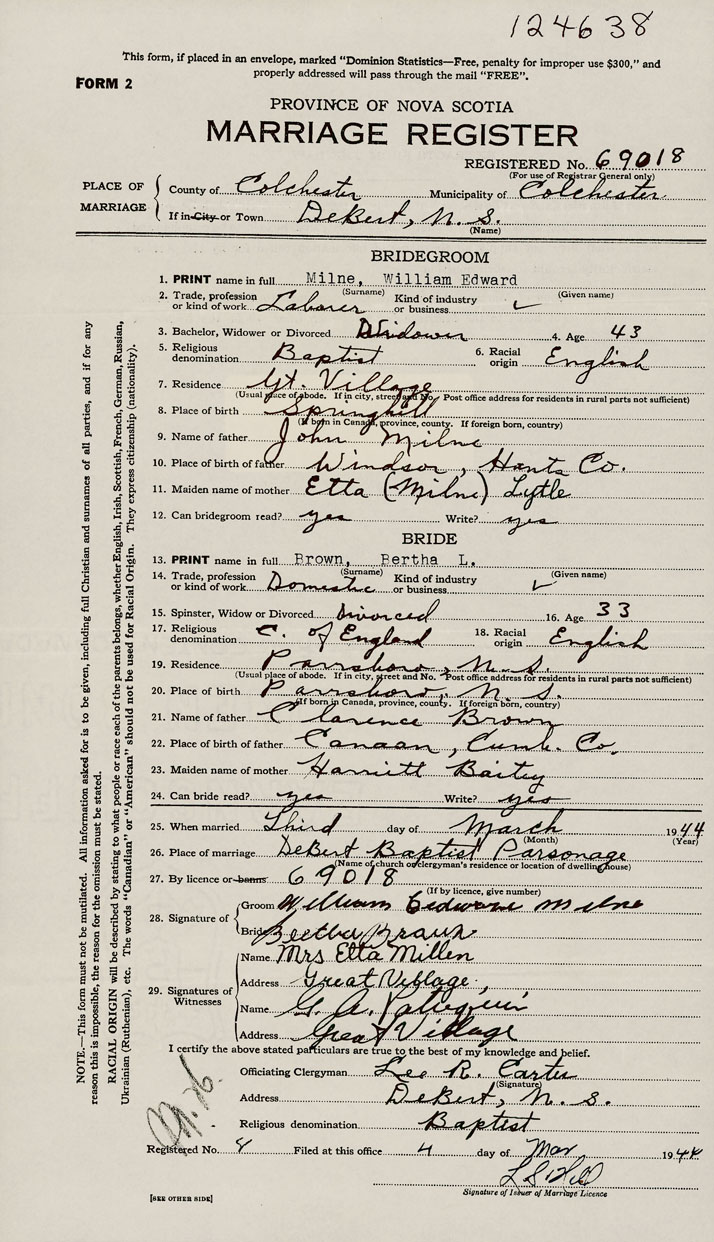 124638
This form, if placed in an envelope, marked "Dominion Statistics—Free, penalty for improper use $300," and
properly addressed will pass through the mail "FREE".
FORM 2
PROVINCE OF NOVA SCOTIA
MARRIAGE REGISTER
REGISTERED No. 69018
(For use of Registrar General only)
PLACE OF MARRIAGE
County of Colchester Municipality of Colchester
If in City or Town DeBert, N. S.
(Name)
BRIDEGROOM
1. PRINT name in full Milne, William Edward
(Surname) (Given name)
2. Trade, profession or kind of work Laborer Kind of industry or business ✓
3. Bachelor, Widower or Divorced Widower 4. Age 43
5. Religious denomination Baptist 6. Racial origin English
7. Residence Gt. Village
(Usual place of abode. If in city, street and No. Post office address for residents in rural parts not sufficient)
8. Place of birth Springhill
(If born in Canada, province, county. If foreign born, country)
9. Name of father John Milne
10. Place of birth of father Windsor, Hants Co.
11. Maiden name of mother Etta (Milne) Lytle
12. Can bridegroom read? yes Write? yes
BRIDE
13. PRINT name in full Brown, Bertha L.
(Surname) (Given name)
14. Trade, profession or kind of work Domestic Kind of industry or business ✓
15. Spinster, Widow or Divorced Divorced 16. Age 33
17. Religious denomination C. of England 18. Racial origin English
19. Residence Parrsboro, N. S.
(Usual place of abode. If in city, street and No. Post office address for residents in rural parts not sufficient)
20. Place of birth Parrsboro, N. S.
(If born in Canada, province, county. If foreign born, country)
21. Name of father Clarence Brown
22. Place of birth of father Canaan, Cumb. Co.
23. Maiden name of mother Harriett Baitey
24. Can bride read? yes Write? yes
25. When married Third day of March 1944
(Month) (Year)
26. Place of marriage DeBert Baptist Parsonage
(Name of church or clergyman's residence or location of dwelling house)
27. By licence or banns 69018
(If by licence, give number)
28. Signature of
Groom William Edward Milne
Bride Beetha Braun
29. Signatures of Witnesses
Name Mrs Etta Millen
Address Great Village
Name G. A.
Address Great Village
I certify the above stated particulars are true to the best of my knowledge and belief.
Officiating Clergyman Lee R. Carter
(Signature)
Address DeBert, N. S.
Religious denomination Baptist
Registered No. 8 Filed at this office 4 day of Mar 1944
Signature of Issuer of Marriage Licence
[SEE OTHER SIDE]
NOTE.—This form must not be mutilated. All information asked for is to be given, including full Christian and surnames of all parties, and if for any
reason this is impossible, the reason for the omission must be stated.
RACIAL ORIGIN will be described by stating to what people or race each of the parents belongs, whether English, Irish, Scottish, French, German, Russian,
Ukrainian (Ruthenian), etc. The words "Canadian" or "American" should not be used for Racial Origin. They express citizenship (nationality).